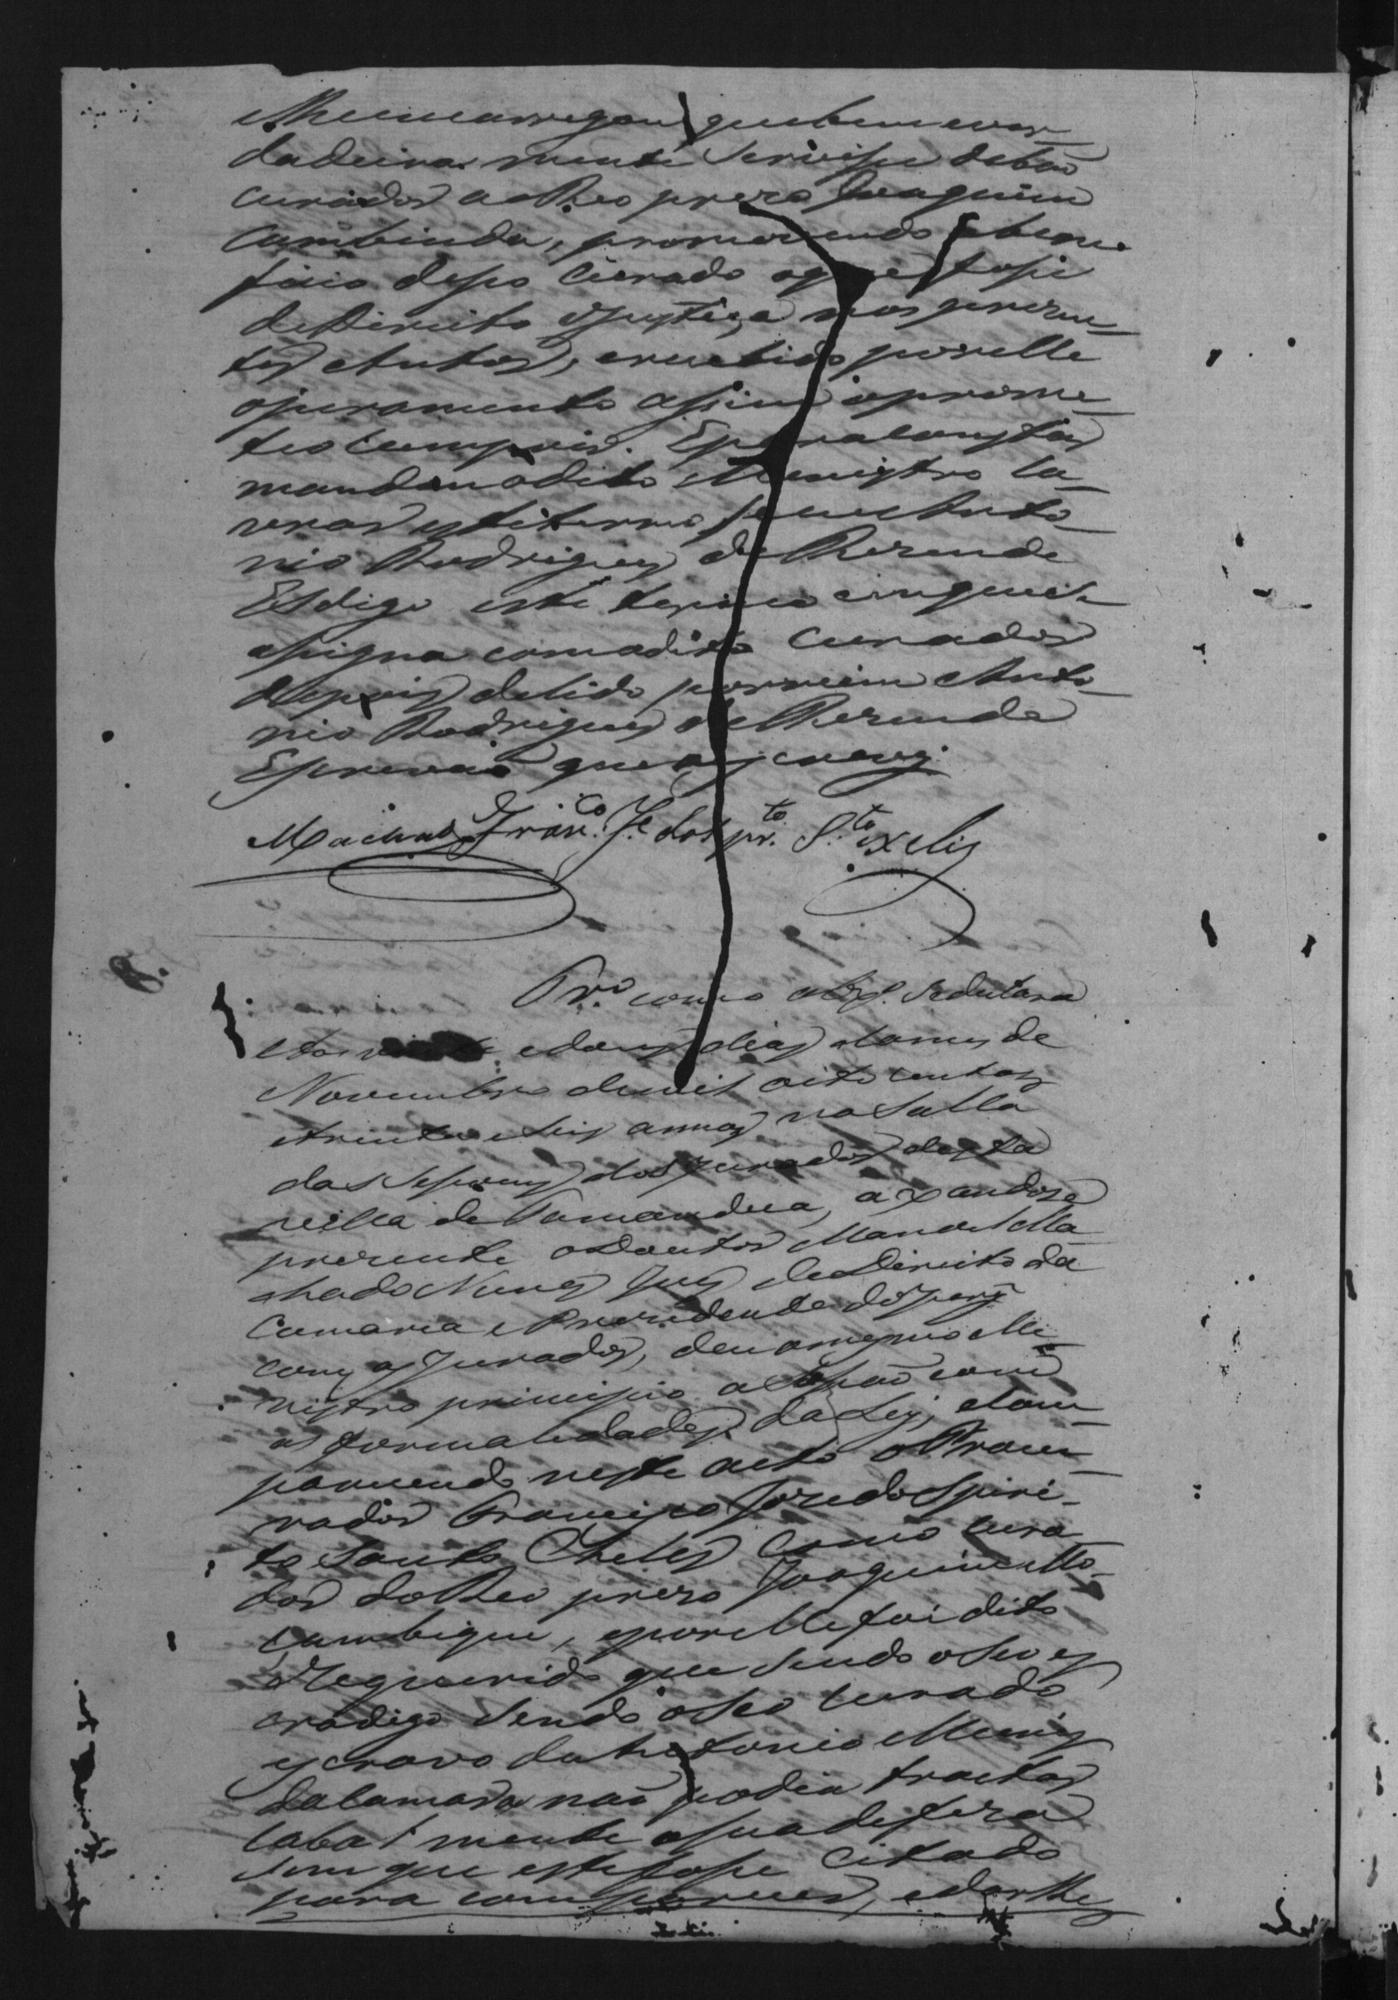 lhe encarregou que bem e ver-
dadeiramente servisse de bom
curador ao Reo prezo Joaquim
Cambinda, promovendo a bene-
ficio desso curado o que fosse
de Direito e Justiça nos prezen-
tes Autos, e recebido por elle
o juramento assim o prome-
teo cumprir. E para constar
mandou o dito Ministro la-
vrar este termo Eu Anto-
nio Rodrigues de Rezende
Es digo este termo em que se
asigna com o dito Curador
depois de lido por mim Anto-
nio Rodrigues de Rezende
Escrivão que o escrevy.
Machado Franco. Je. do Spr.to S.to Xelis
Pr.o como
e dous dias do mes de
Novembro de mil oito centos
e trinta e seis annos na Salla
das Sessoens dos Jurados desta
villa de Tamandua, axandose
prezente o Doutor Manoel Ma-
chado Nunes Juis de Direito da
Comarca e Prezidente do
com os Jurados, deu o mesmo Mi-
nistro principio a Sessão com
as formalidades da Ley, e com-
parecendo neste acto o Procu-
rador Francisco Joze do Spiri-
to Santo Chelis como cura-
dor do Reo prezo Joaquim Mo-
çambique, e por elle foi dito
e requerido que sendo o seo es
cradigo sendo o seo curado
escravo da Antonio Muniz
da Camara não podia tractar
cabalmente a sua defeza
sem que este fosse citado
para comparecer, e dar lhe